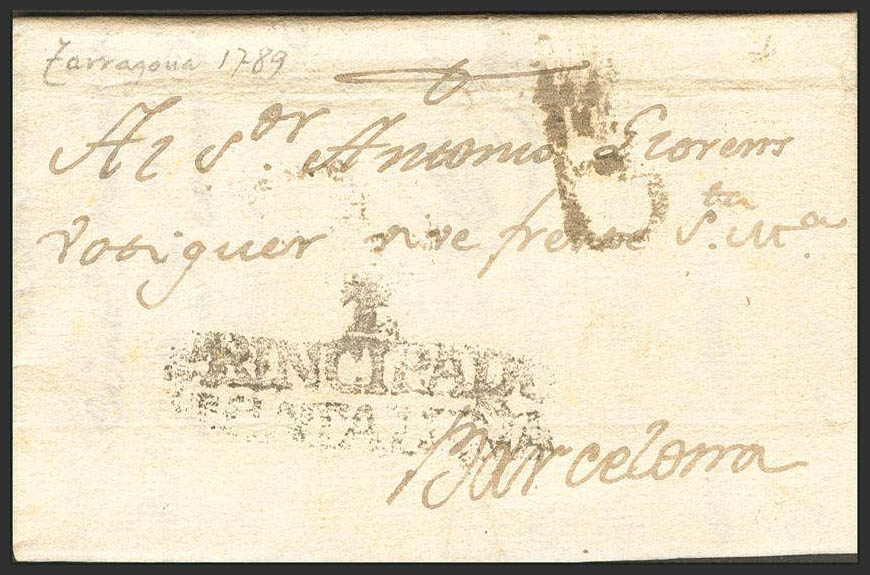 Tarragona 1789
Al S.or Antonio Llorens
Votiguer vive frente S.ta M.a
T
PRINCIPADO
DE CATALUÑA
Barcelona